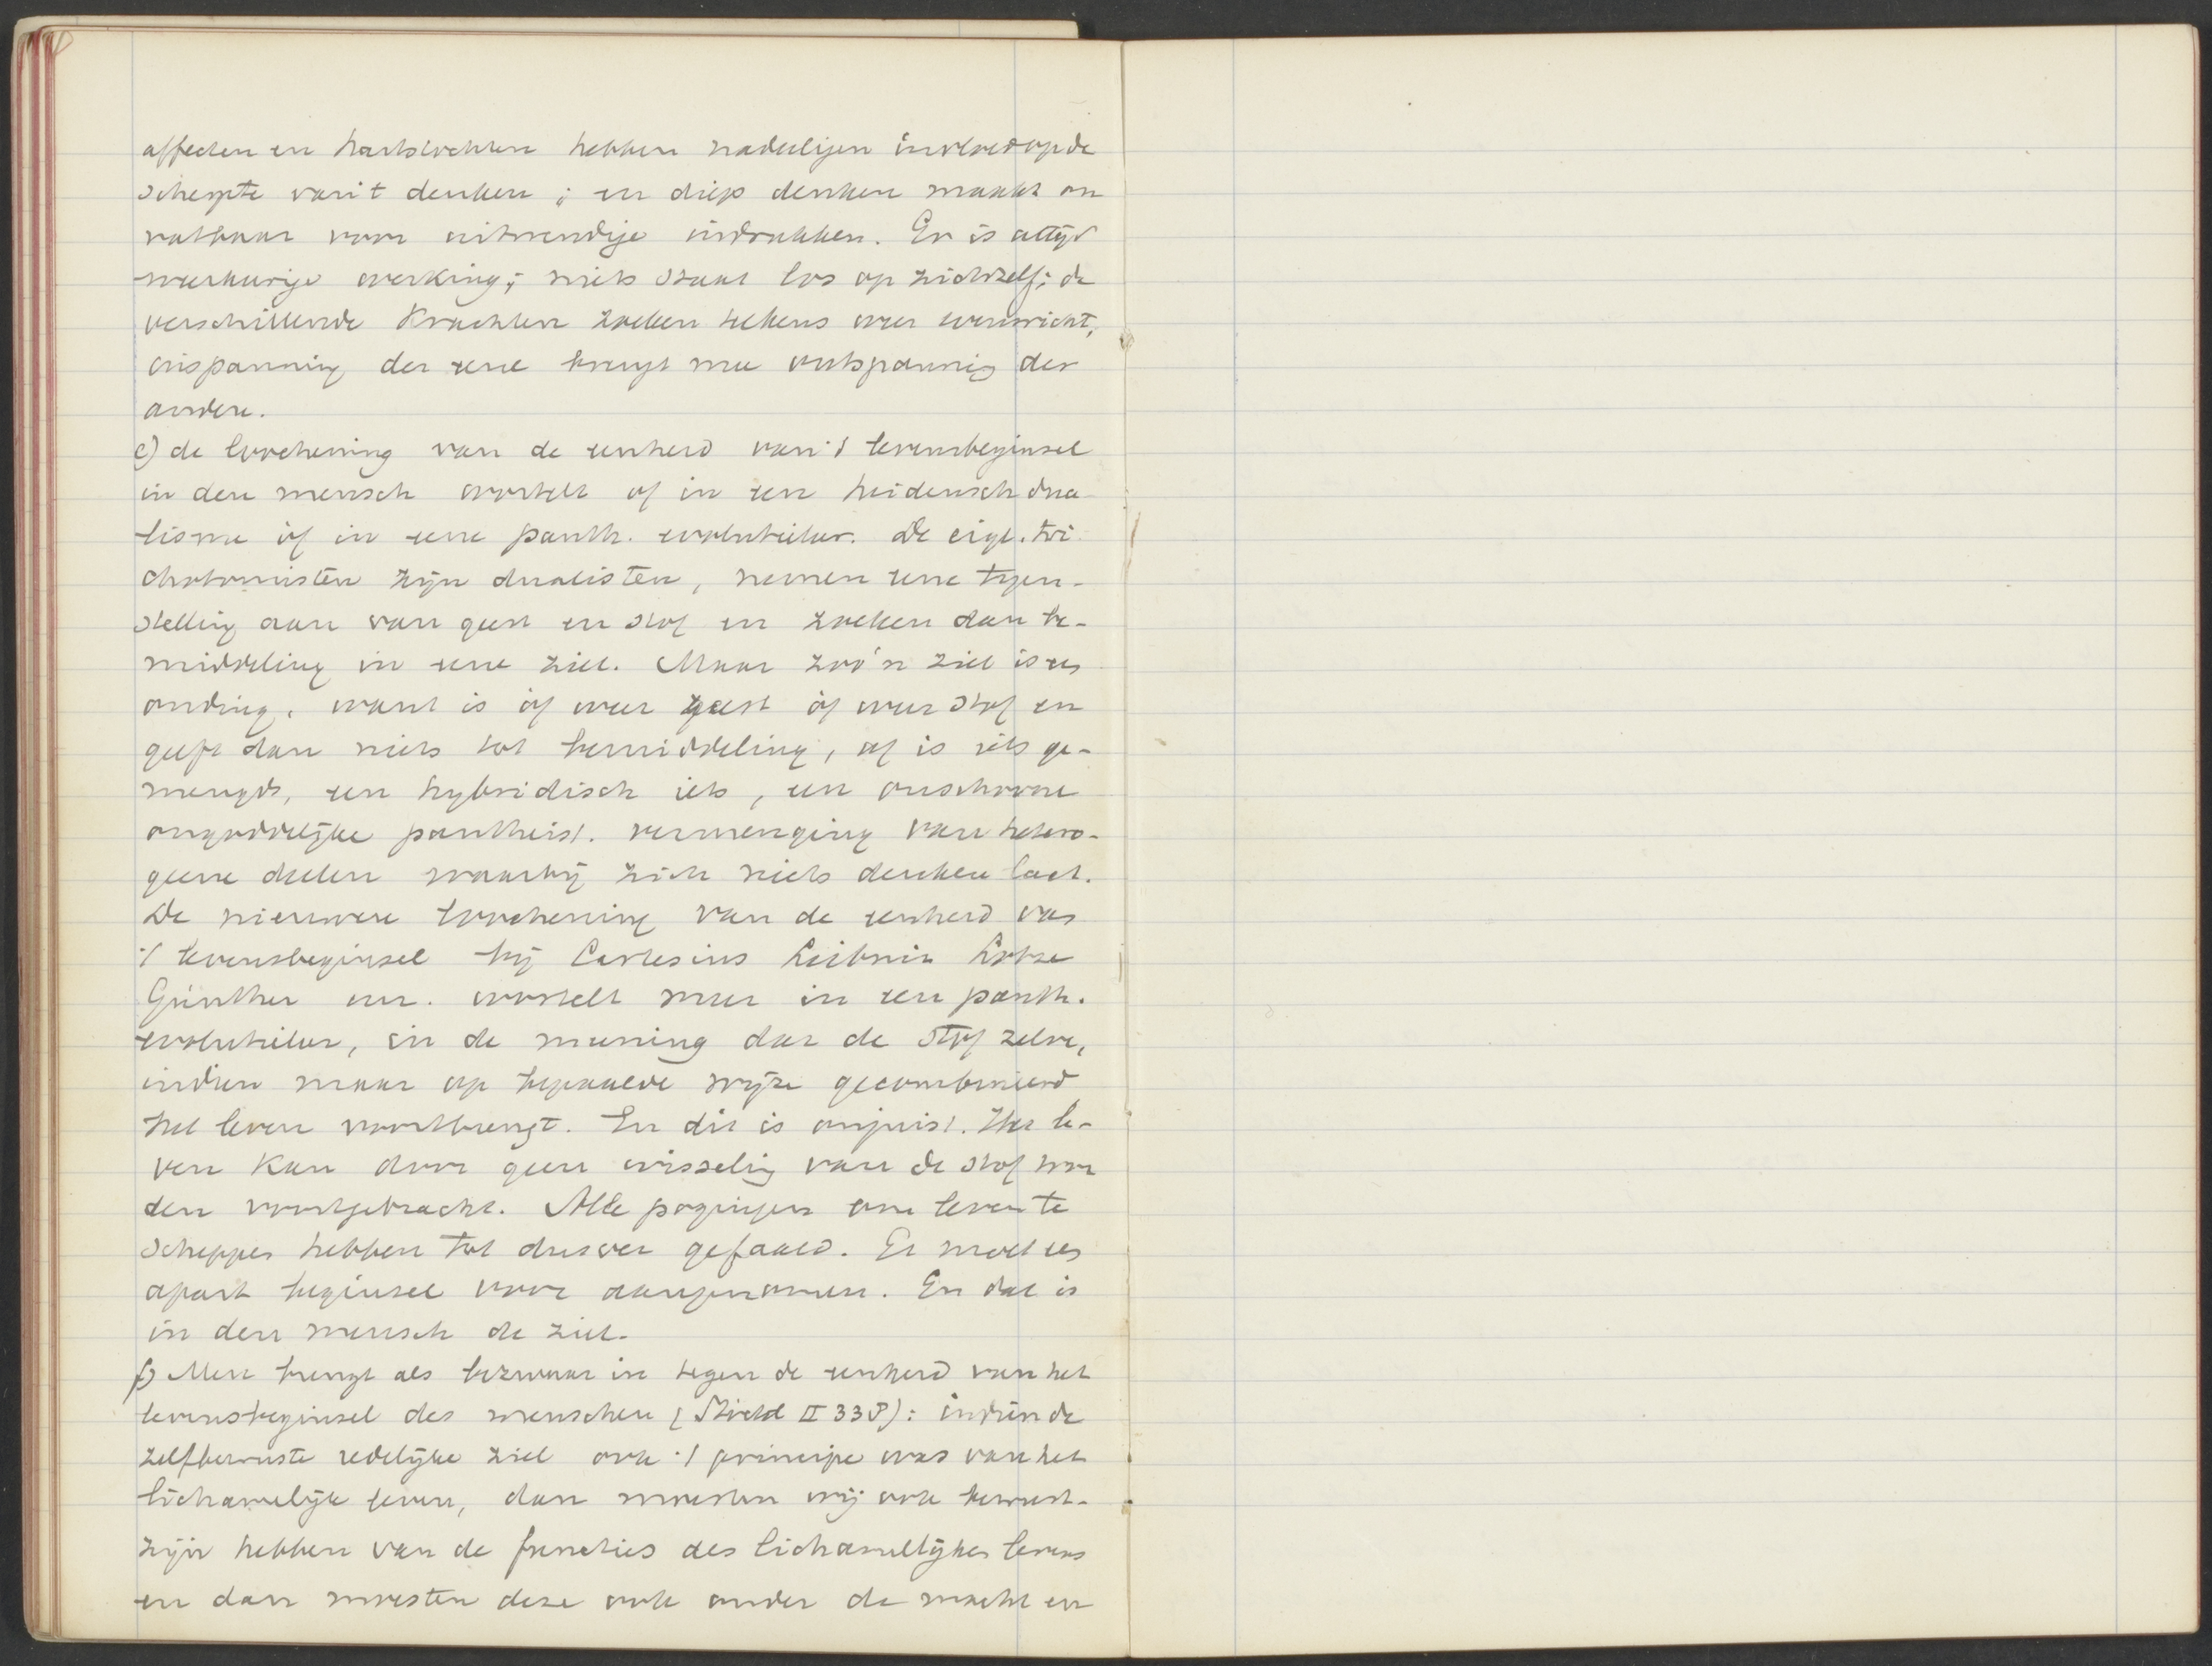 affecten en hartstochten hebben nadeeligen invloed op de
scherpte van 't denken; en diep denken maakt on
vatbaar voor uitwendige indrukken. Er is altijd
weerkeerige werking; niets staat los op zichzelf; de
verschillende Krachten zoeken telkens weer evenwicht,
inspanning der eene brengt mee ontspanning der
andere.
e) de loochening van de eenheid van 't levensbeginsel
in den mensch wortelt of in een heidensch dua-
lisme óf in eene panth. evolutieleer. De eigl. tri
chotomisten zijn dualisten, nemen eene tegen-
stelling aan van geest en stof en zoeken dan be-
middeling in eene ziel. Maar zoo'n ziel is een
onding, want is óf weer geest óf weer stof en
geeft dan niets tot bemiddeling, of is iets ge-
mengds, een hybridisch iets, een onschoone
ongoddelijke pantheist. vermenging van hetero-
geene deelen waarbij zich niets denken laat.
De nieuwere loochening van de eenheid van
't levensbeginsel bij Cartesius Leibniz Lotze
Günther enz. wortelt meer in een panth.
evolutieleer, in de meening dat de stof zelve,
indien maar op bepaalde wijze gecombineerd
het leven voortbrengt. En dit is onjuist. Het le-
ven kan door geen wisseling van de stof wor
den voortgebracht. Alle pogingen om leven te
scheppen hebben tot dusver gefaald. Er moet een
apart beginsel voor aangenomen. En dat is
in den mensch de ziel.
f) Men brengt als bezwaar in tegen de eenheid van het
levensbeginsel des menschen (Stöckl II 338): indien de
zelfbewuste redelijke ziel ook 't principe was van het
lichamelijk leven, dan moesten wij ook bewust-
zijn hebben van de functies des lichamelijken levens
en dan moesten deze ook onder de macht en